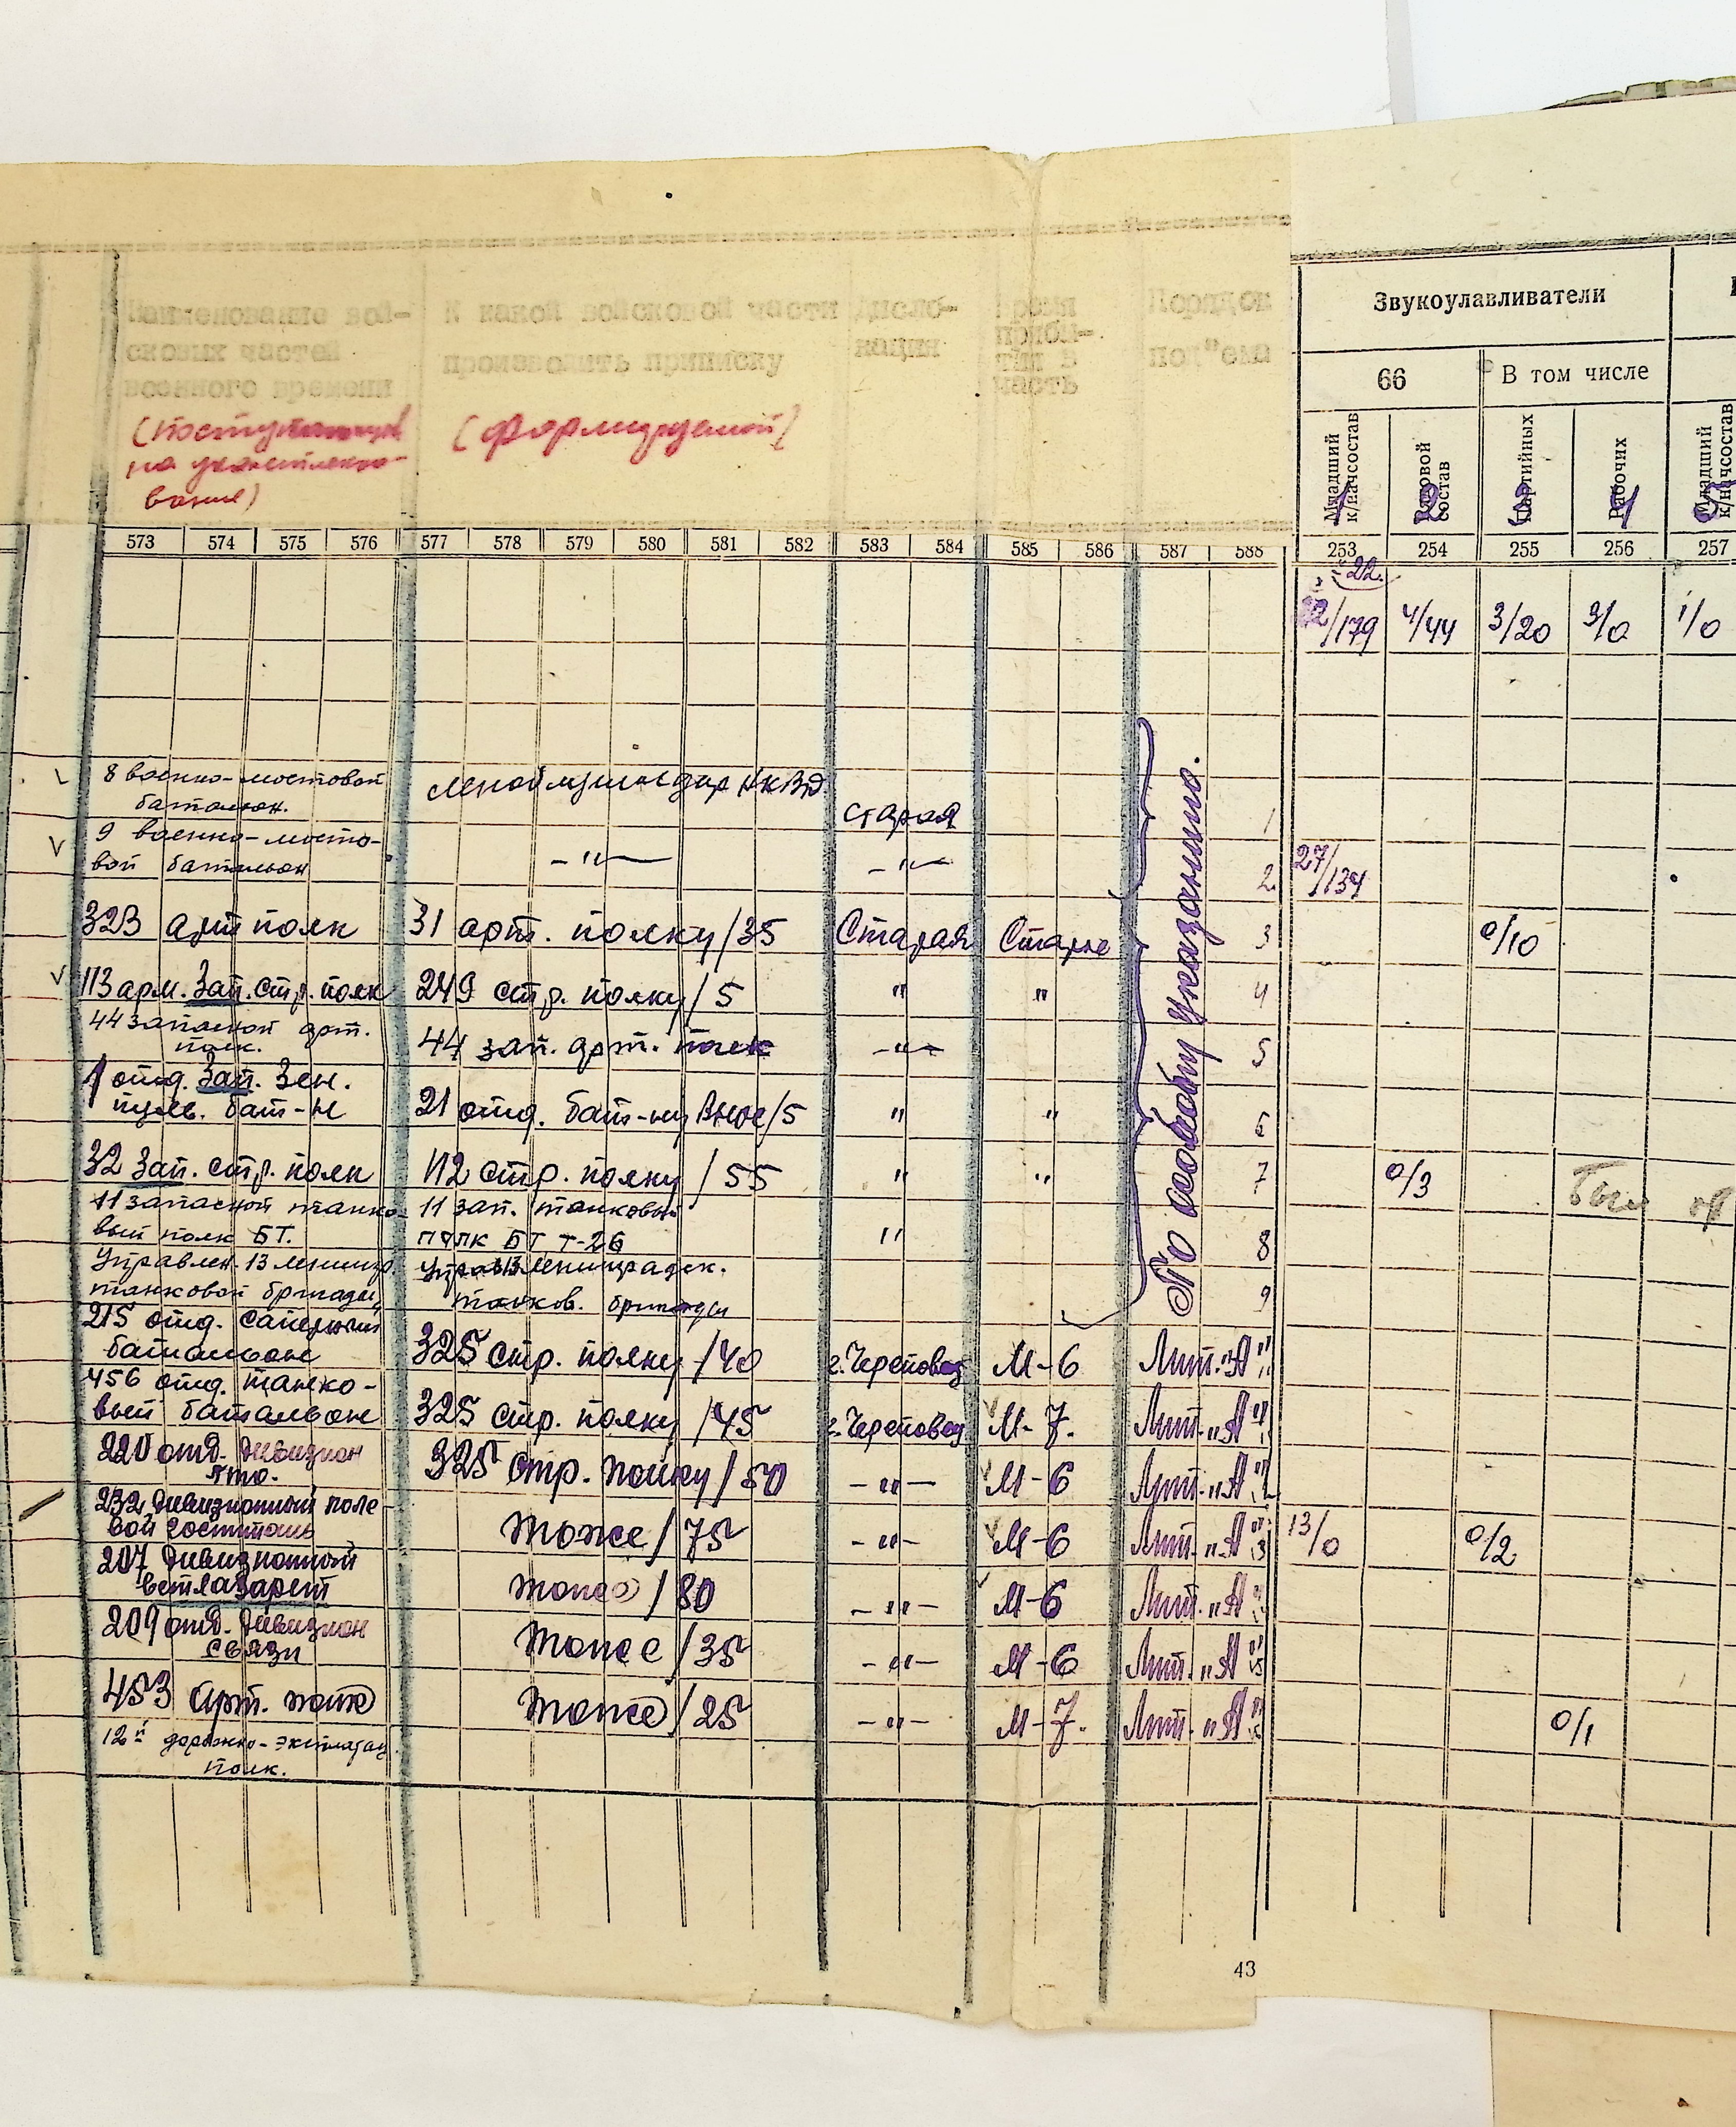 Наименование вой- К какой войсковой части Дисло- Время Порядок
сковых частей производить приписку кация прибы- под"ема
военного времени тия в
часть
(поступающих (формируемой)
на укомплекто-
вание)
Звукоулавливатели
66 В том числе
Младший к/начсостав Рядовой состав Партийных Рабочих Младший к/начсостав
1 2 3 4
573 574 575 576 577 578 579 580 581 582 583 584 585 586 587 588 253 254 255 256 257
22.
/179 4/44 3/20 3/0 1/0
8 военно-мостовой НКВД
батальон. старая 1
9 военно-мосто- 27/134
вой батальон -"- -"- 2
323 арт полк 31 арт. полку/35 Старая Старые 3 0/10
113 арм. зап. стр. полк 249 стр. полку/5 " " 4
44 запасной арт.
полк. 44 зап. арт. полк -"- 5
1 отд. зап. зен.
пулев. бат-н 21 отд. бат-ну ВНОС/5 " " 6
32 зап. стр. полк 112 стр. полку/55 " " 7 0/3
11 запасной танко- 11 зап. танковый
вый полк БТ. полк БТ Т-26 " 8
Управлен. 13 Ленингр. Управ 13 Ленинградск.
танковой бригады танков. бригады 9
По особому указанию.
215 отд. саперный
батальон 325 стр. полку/40 г. Череповец М-6 Лит. "А"
456 отд. танко-
вый батальон 325 стр. полку/45 г. Череповец М-7. Лит. "А"
220 отд. дивизион
ПТО. 325 стр. полку/50 -"- М-6 Лит. "А"
232 дивизионный поле-
вой госпиталь тоже/75 -"- М-6 Лит. "А" 13/0 0/2
207 дивизионный
ветлазарет тоже/80 -"- М-6 Лит. "А"
209 отд. дивизион
связи тоже/35 -"- М-6 Лит. "А"
453 арт. полк тоже/25 -"- М-7. Лит. "А" 0/1
12й дорожно-эксплатац.
полк.
43